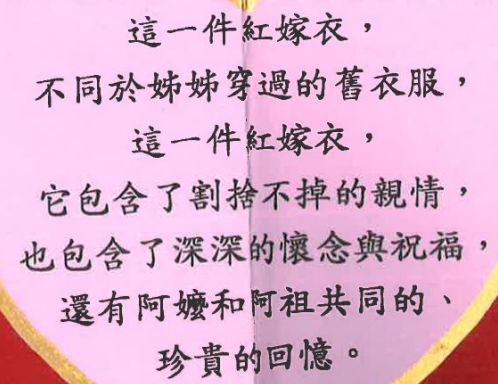 這一件紅嫁衣，
不同於姊姊穿過的舊衣服，
這一件紅嫁衣，
它包含了割捨不掉的親情，
也包含了深深的懷念與祝福，
還有阿嬤和阿祖共同的、
珍貴的回憶。